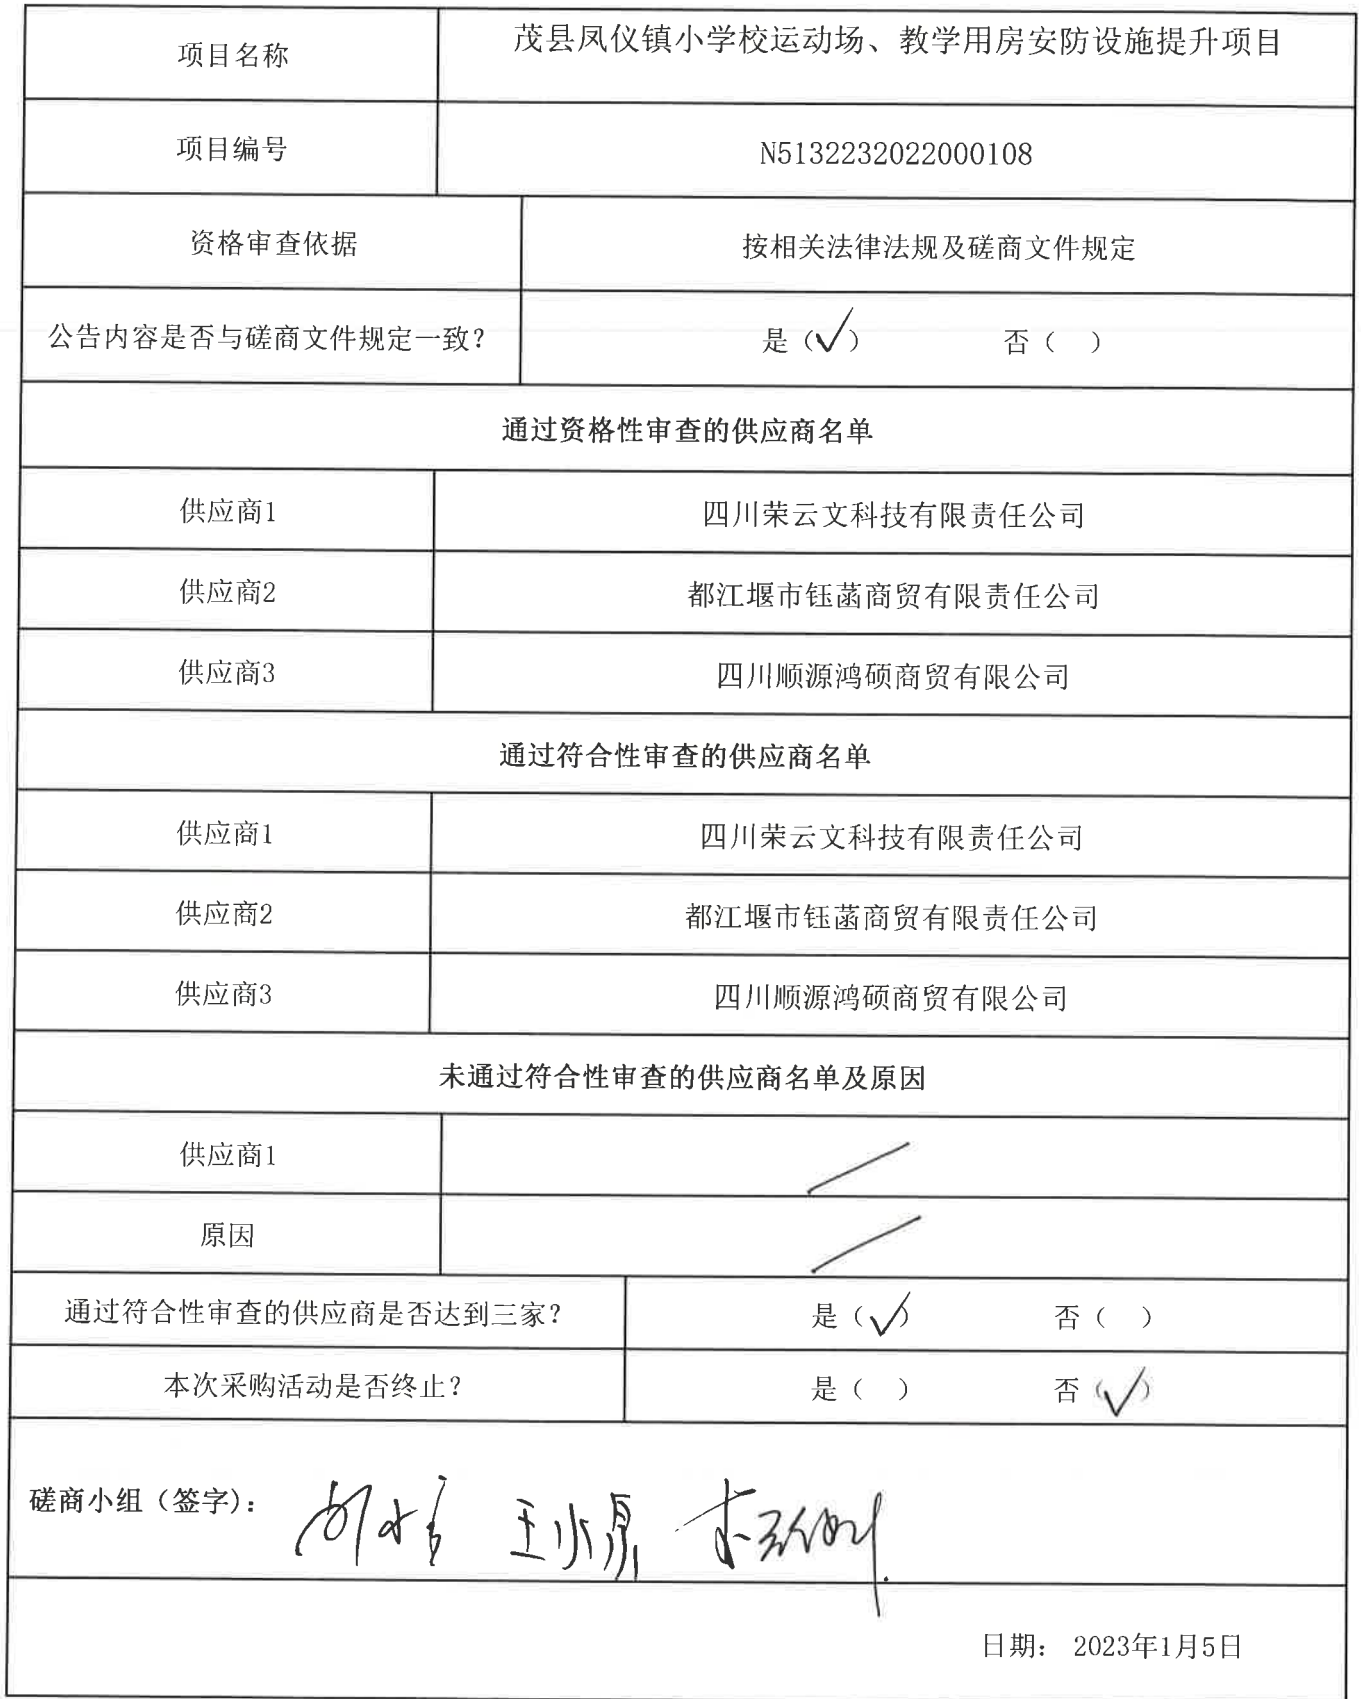 项目名称 茂县凤仪镇小学校运动场、教学用房安防设施提升项目
项目编号 N5132232022000108
资格审查依据 按相关法律法规及磋商文件规定
公告内容是否与磋商文件规定一致? 是(✓) 否( )
通过资格性审查的供应商名单
供应商1 四川荣云文科技有限责任公司
供应商2 都江堰市钰菡商贸有限责任公司
供应商3 四川顺源鸿硕商贸有限公司
通过符合性审查的供应商名单
供应商1 四川荣云文科技有限责任公司
供应商2 都江堰市钰菡商贸有限责任公司
供应商3 四川顺源鸿硕商贸有限公司
未通过符合性审查的供应商名单及原因
供应商1 /
原因 /
通过符合性审查的供应商是否达到三家? 是(✓) 否( )
本次采购活动是否终止? 是( ) 否(✓)
磋商小组(签字):
日期: 2023年1月5日